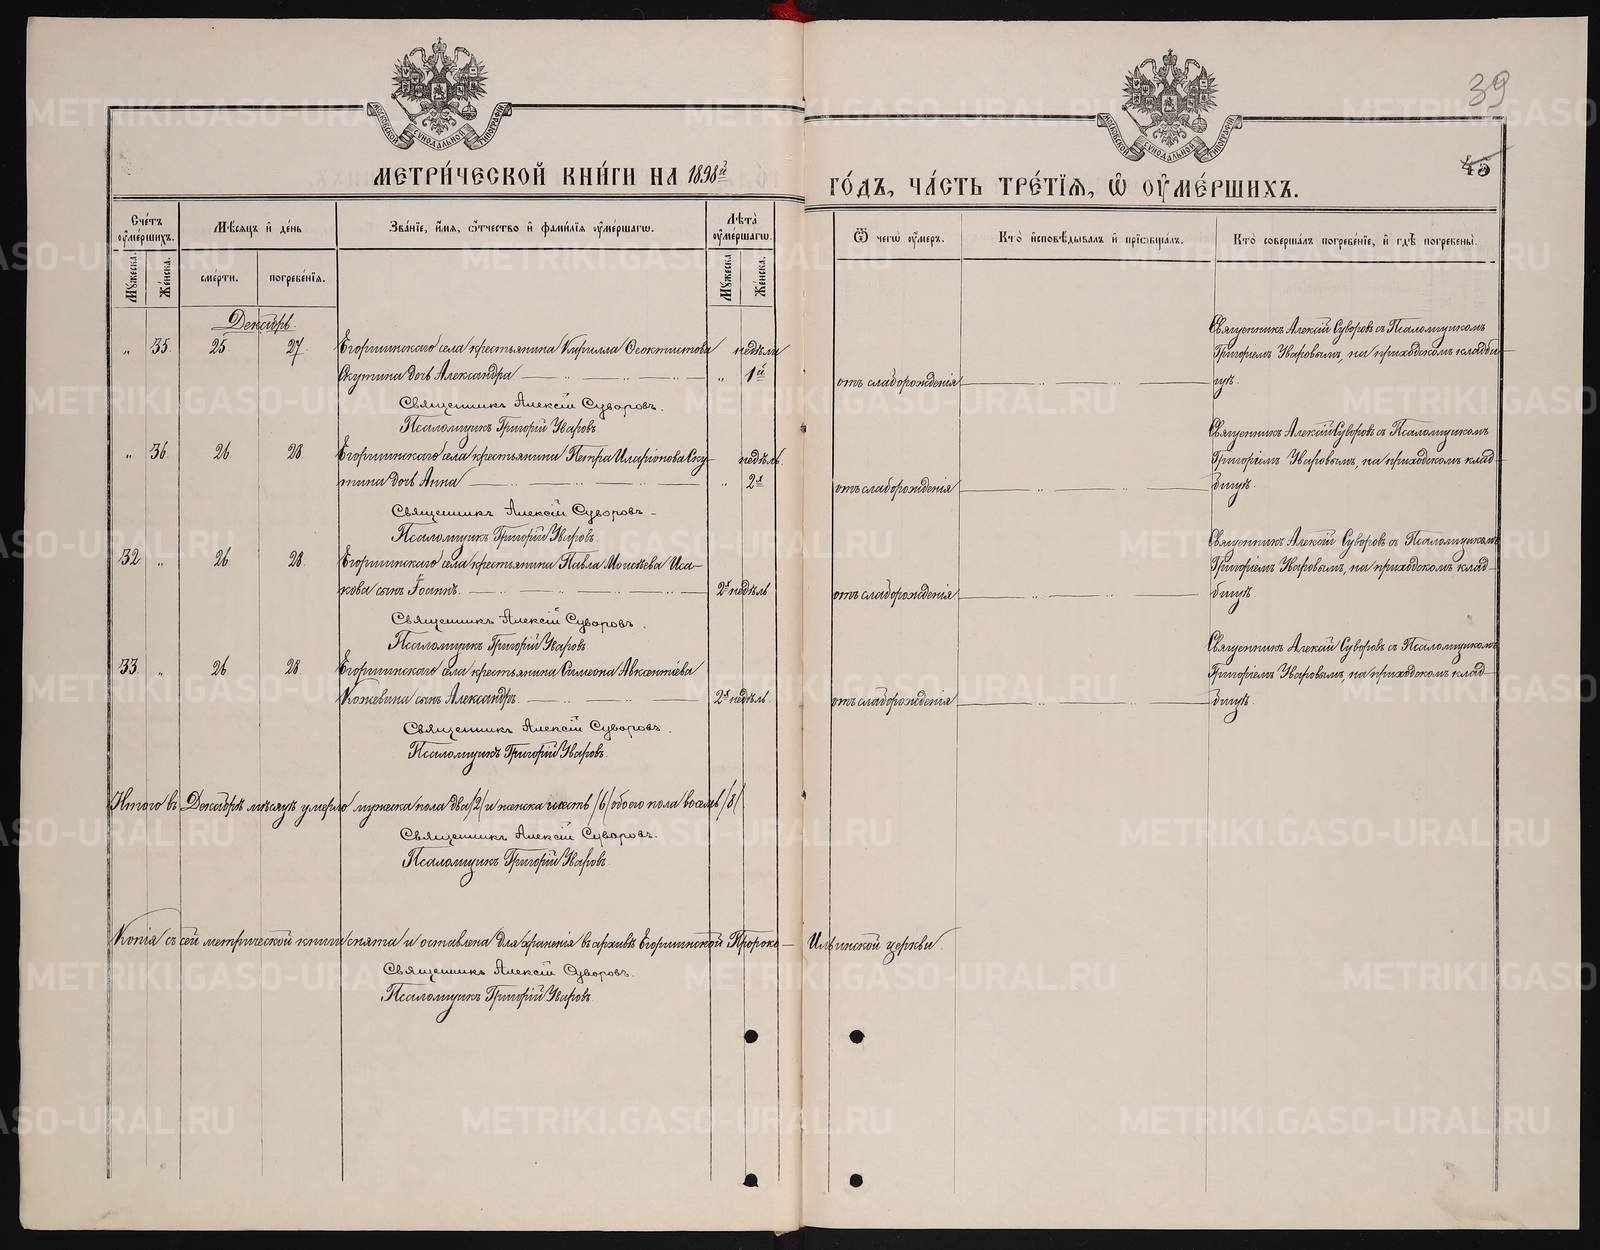 39
45
МЕТРИ́ЧЕСКОЙ КНИ́ГИ НА 1898й
ГО́ДЪ, ЧА́СТЬ ТРЕ́ТІѦ, Ѽ ОУМЕ́РШИХЪ.
Сче́тъ оумéршихъ.
Мѣ́сѧцъ и҆ де́нь
Зва́нїе, и҆́мѧ, ѻ҆́тчество и҆ фами́лїѧ оуме́ршагѡ.
Лѣ́та оуме́ршагѡ.
Ѿ чегѡ̀ оу́меръ.
Кто̀ и҆сповѣ́дывалъ и҆ прїѡбща́лъ.
Кто̀ соверша́лъ погребе́нїе, и҆ гдѣ̀ погребены̀.
Мꙋ́жеска.
Же́нска.
сме́рти.
погребе́нїѧ.
Мꙋ́жеска
Же́нска.
Декабрь.
„ 35. 25. 27. Егоршинскаго села крестьянина Кирилла Ѳеоктистова недѣли
Скутина дочь Александра „ 1й отъ слаборожденія
Священникъ Алексій Суворовъ съ Псаломщикомъ
Григоріемъ Уваровымъ, на приходскомъ кладби-
щѣ.
Священникъ Алексій Суворовъ.
Псаломщикъ Григорій Уваровъ.
„ 36. 26. 28. Егоршинскаго села крестьянина Петра Иларіонова Ску- недѣль
тина дочь Анна „ 2х отъ слаборожденія
Священникъ Алексій Суворовъ съ Псаломщикомъ
Григоріемъ Уваровымъ, на приходскомъ клад-
бищѣ.
Священникъ Алексій Суворовъ
Псаломщикъ Григорій Уваровъ
32. „ 26. 28. Егоршинскаго села крестьянина Павла Моисѣева Иса-
кова сынъ Іоаннъ. 2х недѣль отъ слаборожденія
Священникъ Алексій Суворовъ съ Псаломщикомъ
Григоріемъ Уваровымъ, на приходскомъ клад-
бищѣ.
Священникъ Алексій Суворовъ.
Псаломщикъ Григорій Уваровъ
33. „ 26. 28. Егоршинскаго села крестьянина Симеона Авксентіева
Кожевина сынъ Александръ. 2х недѣль. отъ слаборожденія
Священникъ Алексій Суворовъ съ Псаломщикомъ
Григоріемъ Уваровымъ, на приходскомъ клад-
бищѣ.
Священникъ Алексій Суворовъ.
Псаломщикъ Григорій Уваровъ.
Итого въ Декабрѣ мѣсяцѣ умерло мужеска пола два /2/ и женска шесть /6/ обоего пола восемь /8/
Священникъ Алексій Суворовъ.
Псаломщикъ Григорій Уваровъ.
Копія съ сей метрической книги снята и оставлена для храненія въ архивѣ Егоршинской Пророко- Ильинской церкви.
Священникъ Алексій Суворовъ.
Псаломщикъ Григорій Уваровъ
METRIKI.GASO-URAL.RU